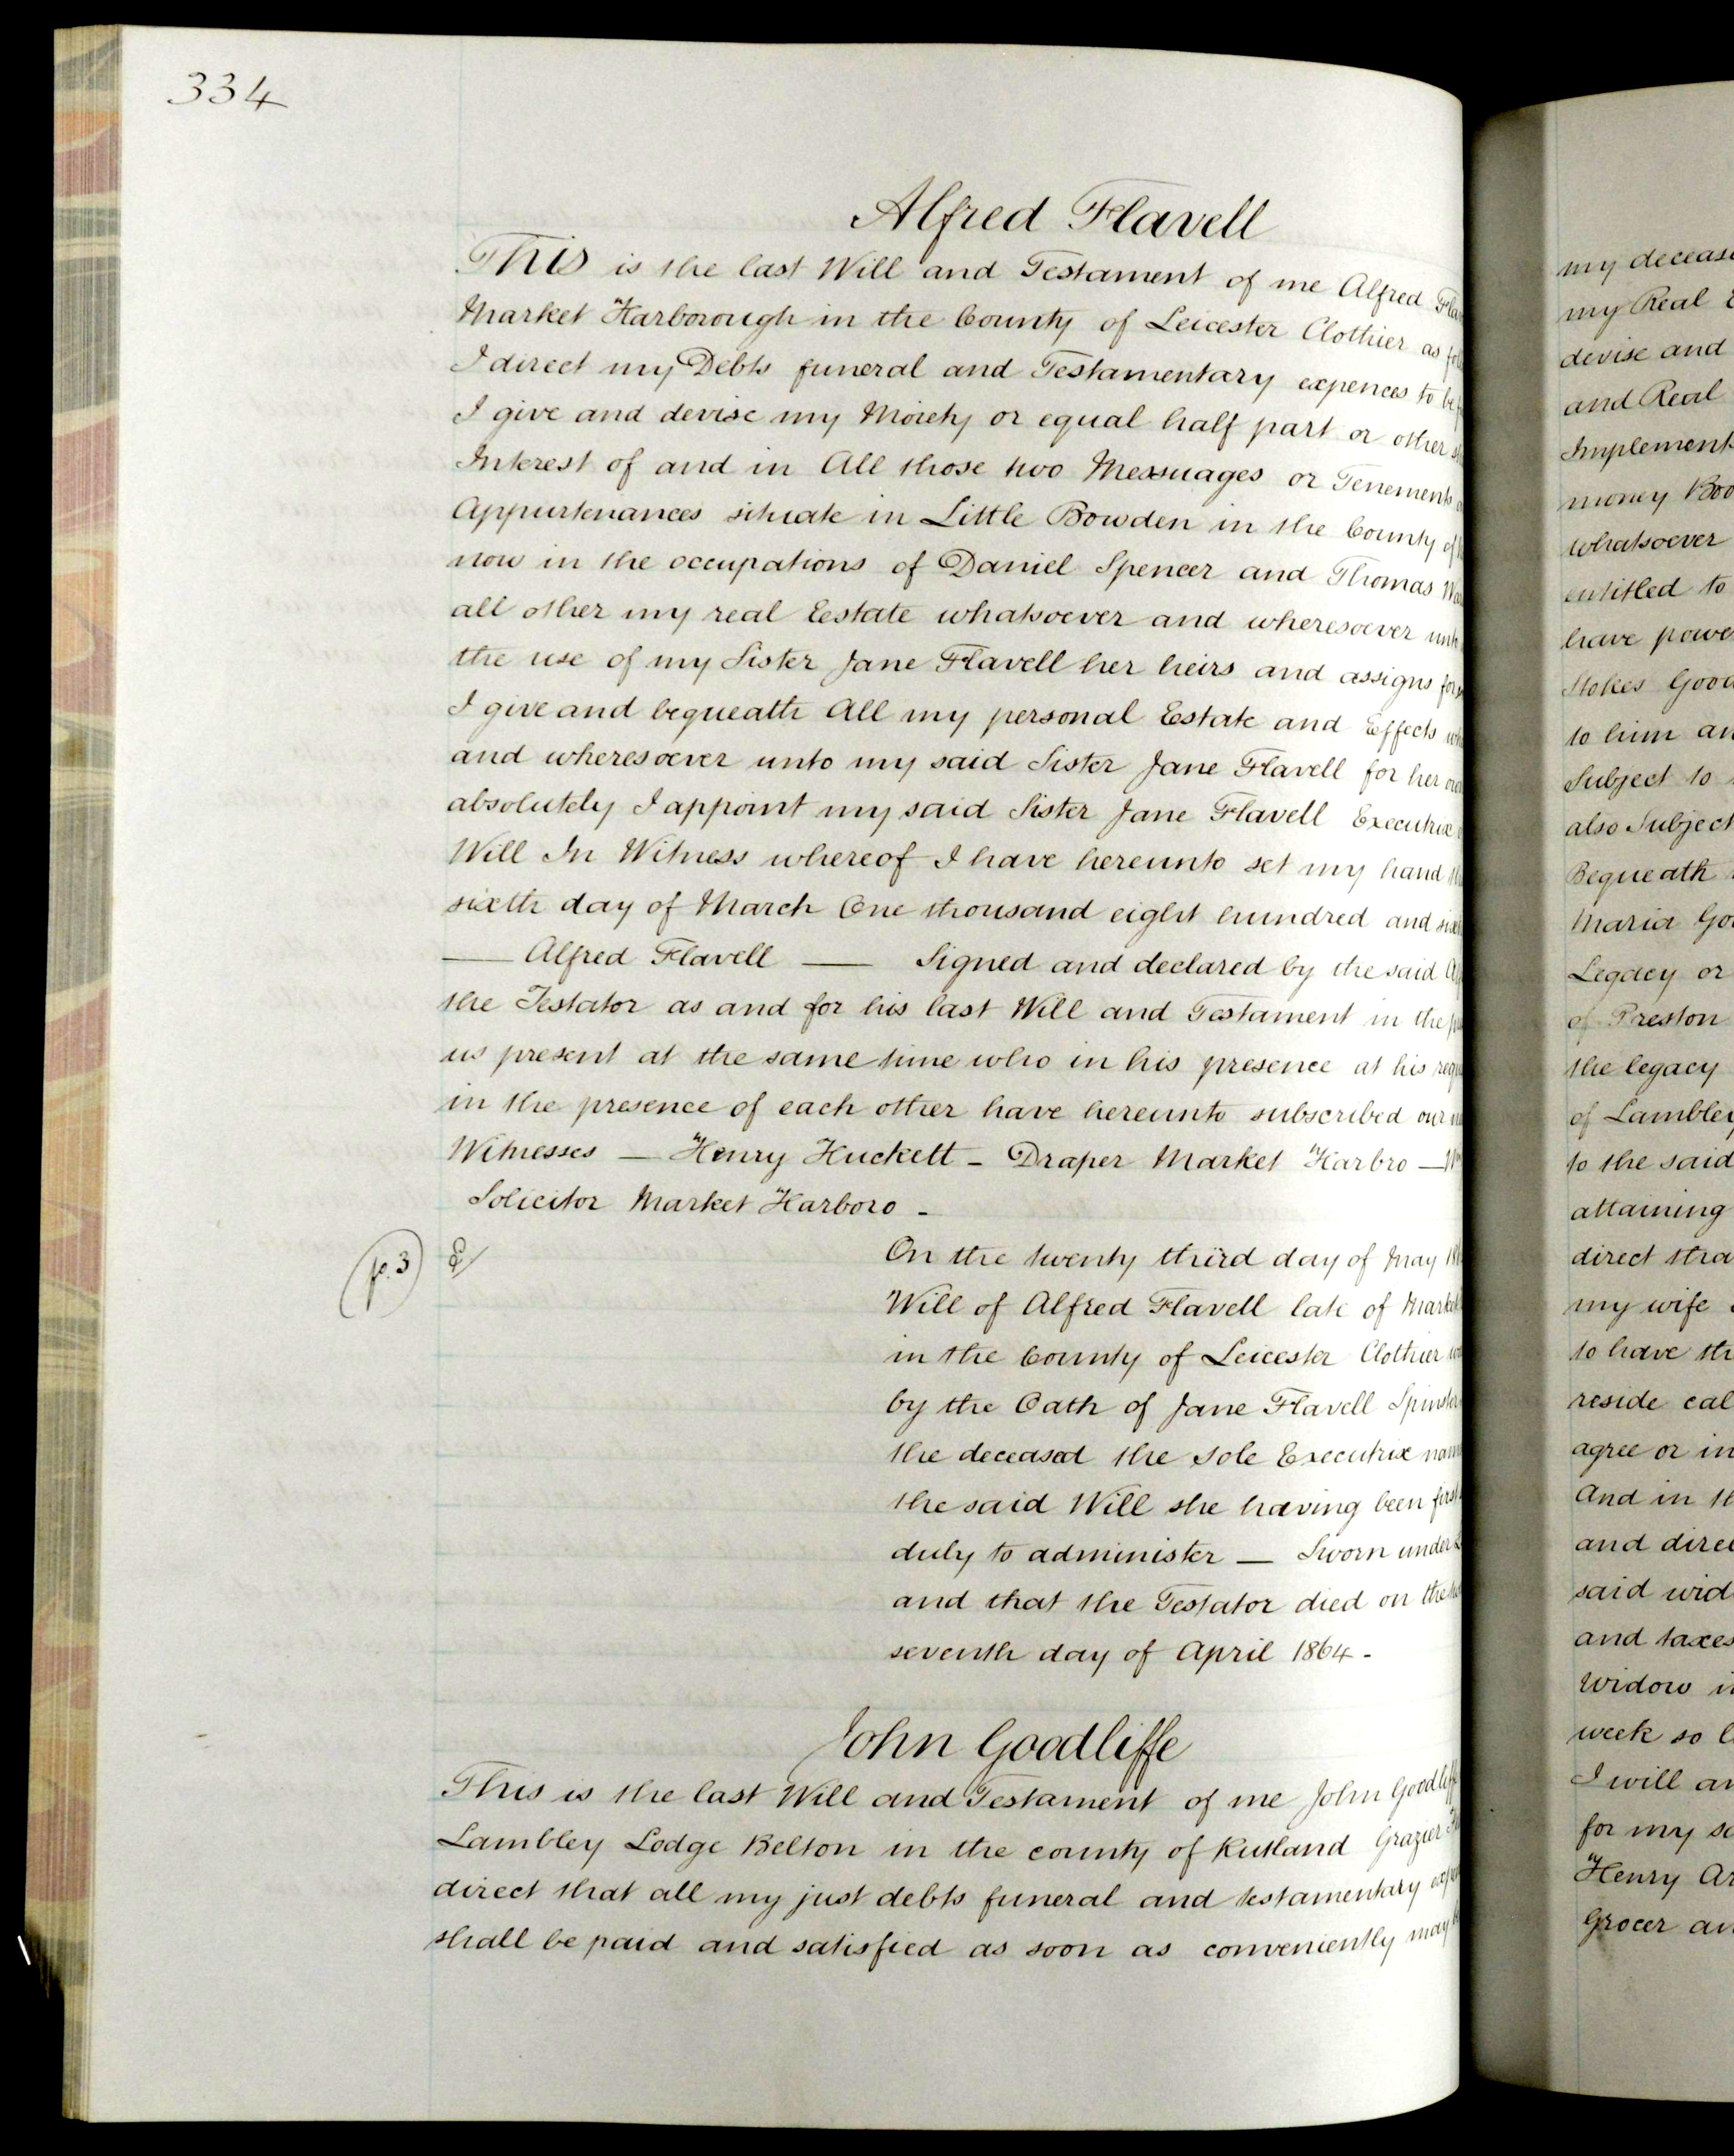 334
Alfred Flavell
This is the last Will and Testament of me Alfred Fla
Market Harborough in the County of Leicester Clothier as fol
I direct my Debts funeral and Testamentary expences to be
I give and devise my Moiety or equal half part or other
Interest of and in All those two Messuages or Tenements
Appurtenances situate in Little Bowden in the County of
now in the occupations of Daniel Spencer and Thomas
all other my real Eestate whatsoever and wheresoever unto
the use of my Sister Jane Flavell her heirs and assigns for
I give and bequeath All my personal Estate and Effects
and wheresoever unto my said Sister Jane Flavell for her own
absolutely I appoint my said Sister Jane Flavell Executrix
Will In Witness whereof I have hereunto set my hand
sixth day of March One thousand eight hundred and six
— Alfred Flavell — Signed and declared by the said
the Testator as and for his last Will and Testament in the
us present at the same time who in his presence at his req
in the presence of each other have hereunto subscribed our
Witnesses — Henry Huckett - Draper Market Harbro —
Solicitor Market Harboro -
On the twenty third day of May 18
Will of Alfred Flavell late of Market
in the County of Leicester Clothier
by the Oath of Jane Flavell Spinster
the deceased the sole Executrix nam
the said Will she having been first
duly to administer — Sworn under
and that the Testator died on the
seventh day of April 1864 -
John Goodliffe
This is the last Will and Testament of me John Goodliff
Lambley Lodge Belton in the county of Rutland Grazier
direct that all my just debts funeral and testamentary exp
shall be paid and satisfied as soon as conveniently may
my deceas
my Real E
devise and
and Real
Implement
money Boo
whatsoever
entitled to
have powe
Stokes Good
to him an
Subject to
also Subject
Bequeath
Maria Go
Legacy or
of Preston
the legacy
of Lambley
to the said
attaining
direct tha
my wife
to have th
reside cal
agree or in
And in th
and direc
said wid
and taxes
Widow i
week so l
I will an
for my so
Henry Ar
Grocer an